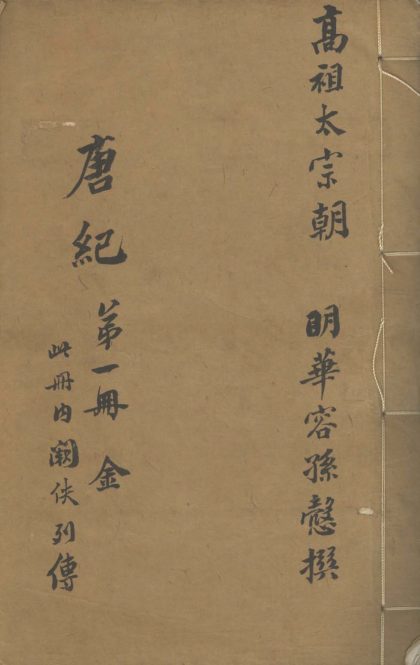 高祖太宗朝 明華容孫慤撰
唐紀 第一冊 金
此冊内闕佚列傳